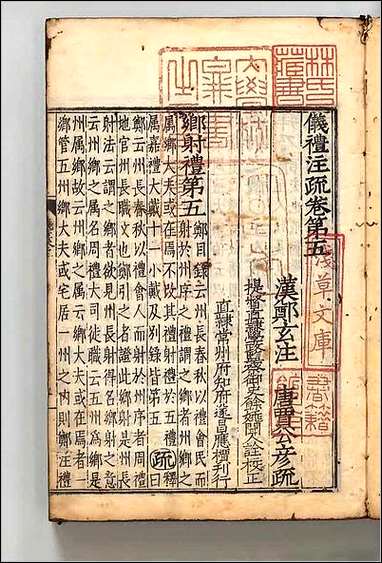 林氏藏書
淺草文庫
儀禮注疏卷第五
漢鄭玄注 唐賈公彥疏
提督直隸學政監察御史餘姚聞人詮校正
直隸常州府知府遂昌應檟刊行
鄉射禮第五 鄭目錄云州長春秋以禮會民而
射於州序之禮謂之鄉者州鄉之
屬鄉大夫或在焉不改其禮射禮於五禮
屬嘉禮大戴十一小戴及別錄皆第五 疏
鄭云州長春秋以禮會人而射於州序者周禮
地官州長職文也鄭引之者證此鄉射是州長
射法云謂之鄉者欲見州長射得名鄉射之意
云州鄉之屬者周禮大司徒職云五州爲鄉是
州鄉屬故云州鄉之屬云鄉大夫或在焉者
鄉管五州鄉大夫或宅居一州之內則鄭注禮